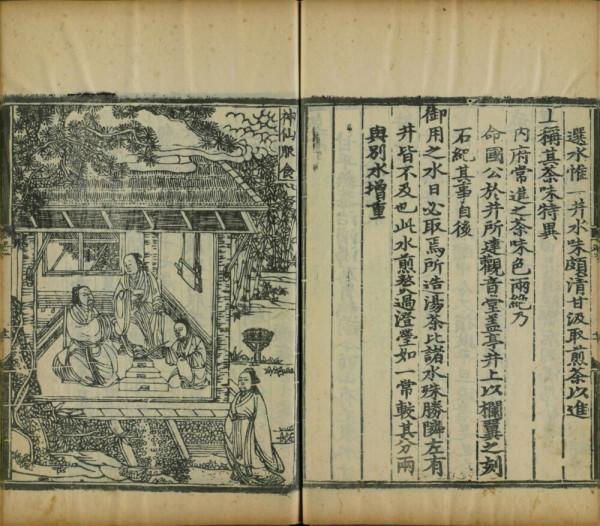 選水惟一井水味頗清甘汲取煎茶以進
上稱其茶味特異
內府常進之茶味色兩絶乃
命國公於井所建觀音堂蓋亭井上以欄翼之刻
石紀其事自後
御用之水日必取焉所造湯茶比諸水殊勝隣左有
井皆不及也此水煎熬過澄瑩如一常較其分兩
與別水增重
神仙服食